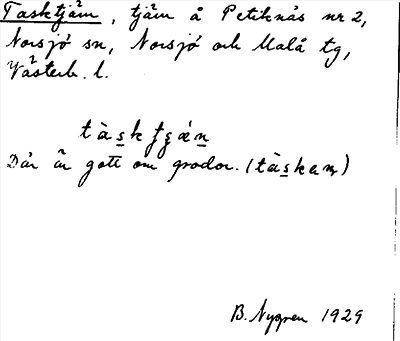 Tasktjärn, tjärn å Petiknäs nr 2,
Norsjö sn, Norsjö och Malå tg,
Västerb. l.
Där är gott om grodor. (tàskaṇ)
B. Nygren 1929